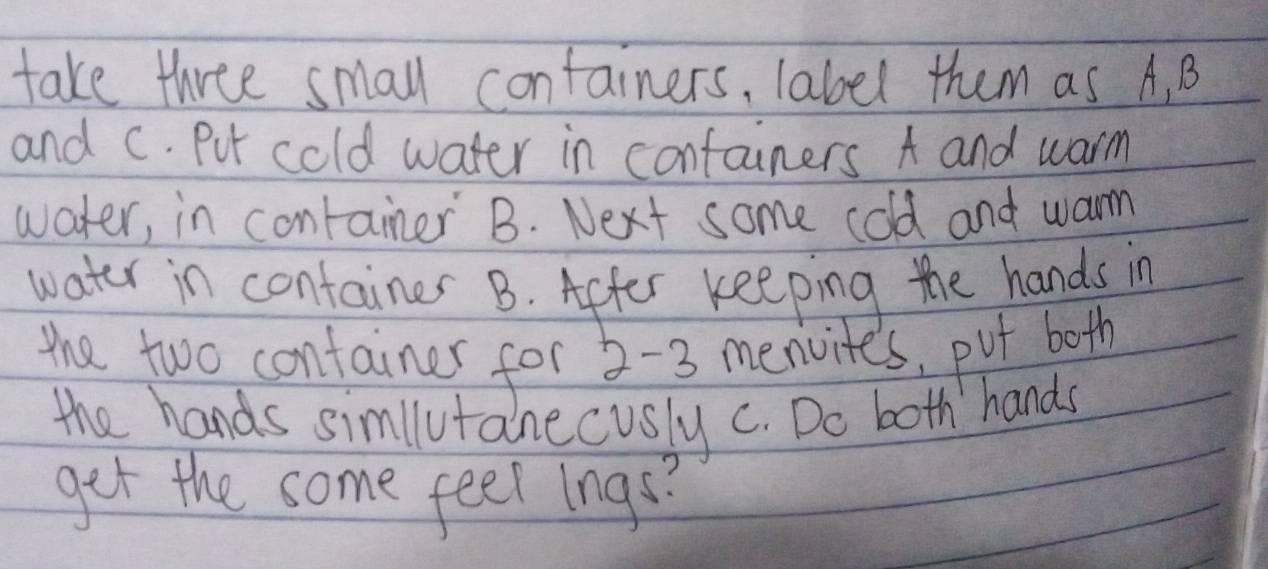 take three small containers, label them as A,B
and C. Put cold water in containers A and warm
water, in container B. Next some cold and warm
water in container B. After keeping the hands in
the two container for 2-3 menuites, put both
the hands simllutanecusly C. Do both hands
get the some feel Ings?